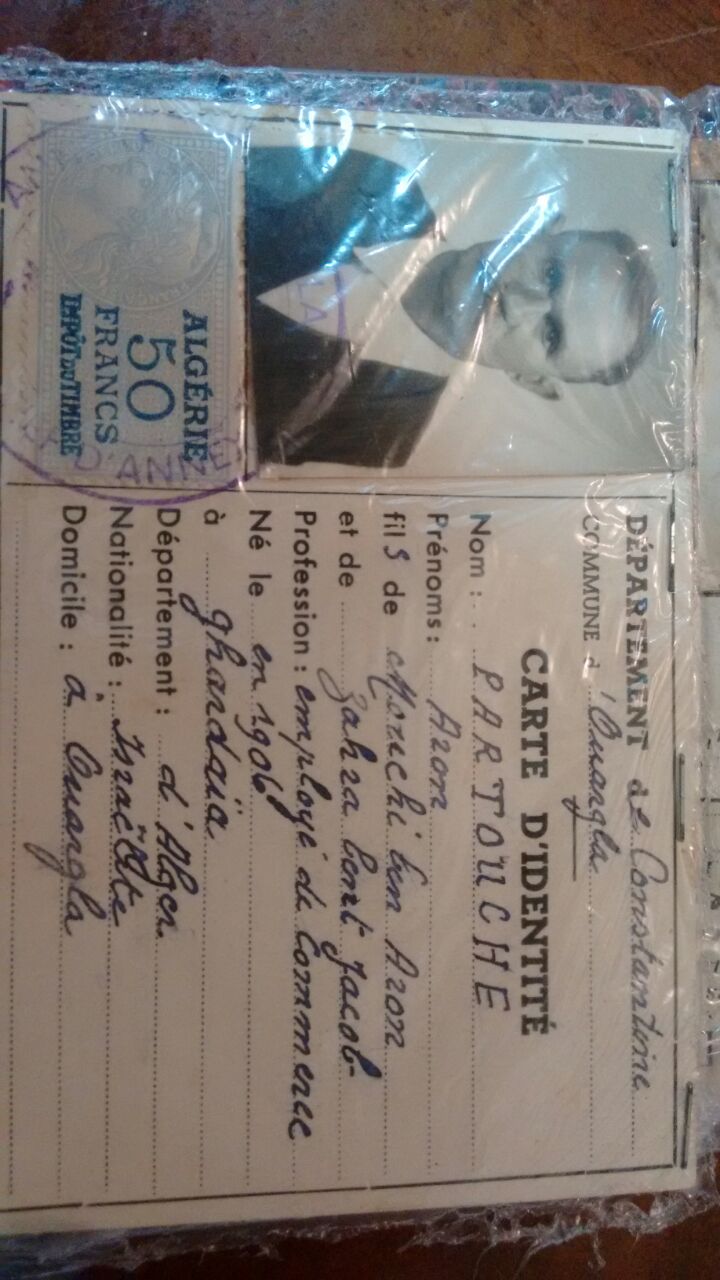 DÉPARTEMENT de Constantine
COMMUNE d'Ouargla
CARTE D'IDENTITÉ
Nom : PARTOUCHE
Prénoms : Aron
fils de Mouchi ben Aron
et de Zahra bent Jacob
Profession : employé de Commerce
Né le en 1906
à ghardaïa
Département : d'Alger.
Nationalité : Israëlite
Domicile : à Ouargla
ALGÉRIE
50
FRANCS
IMPÔT DU TIMBRE